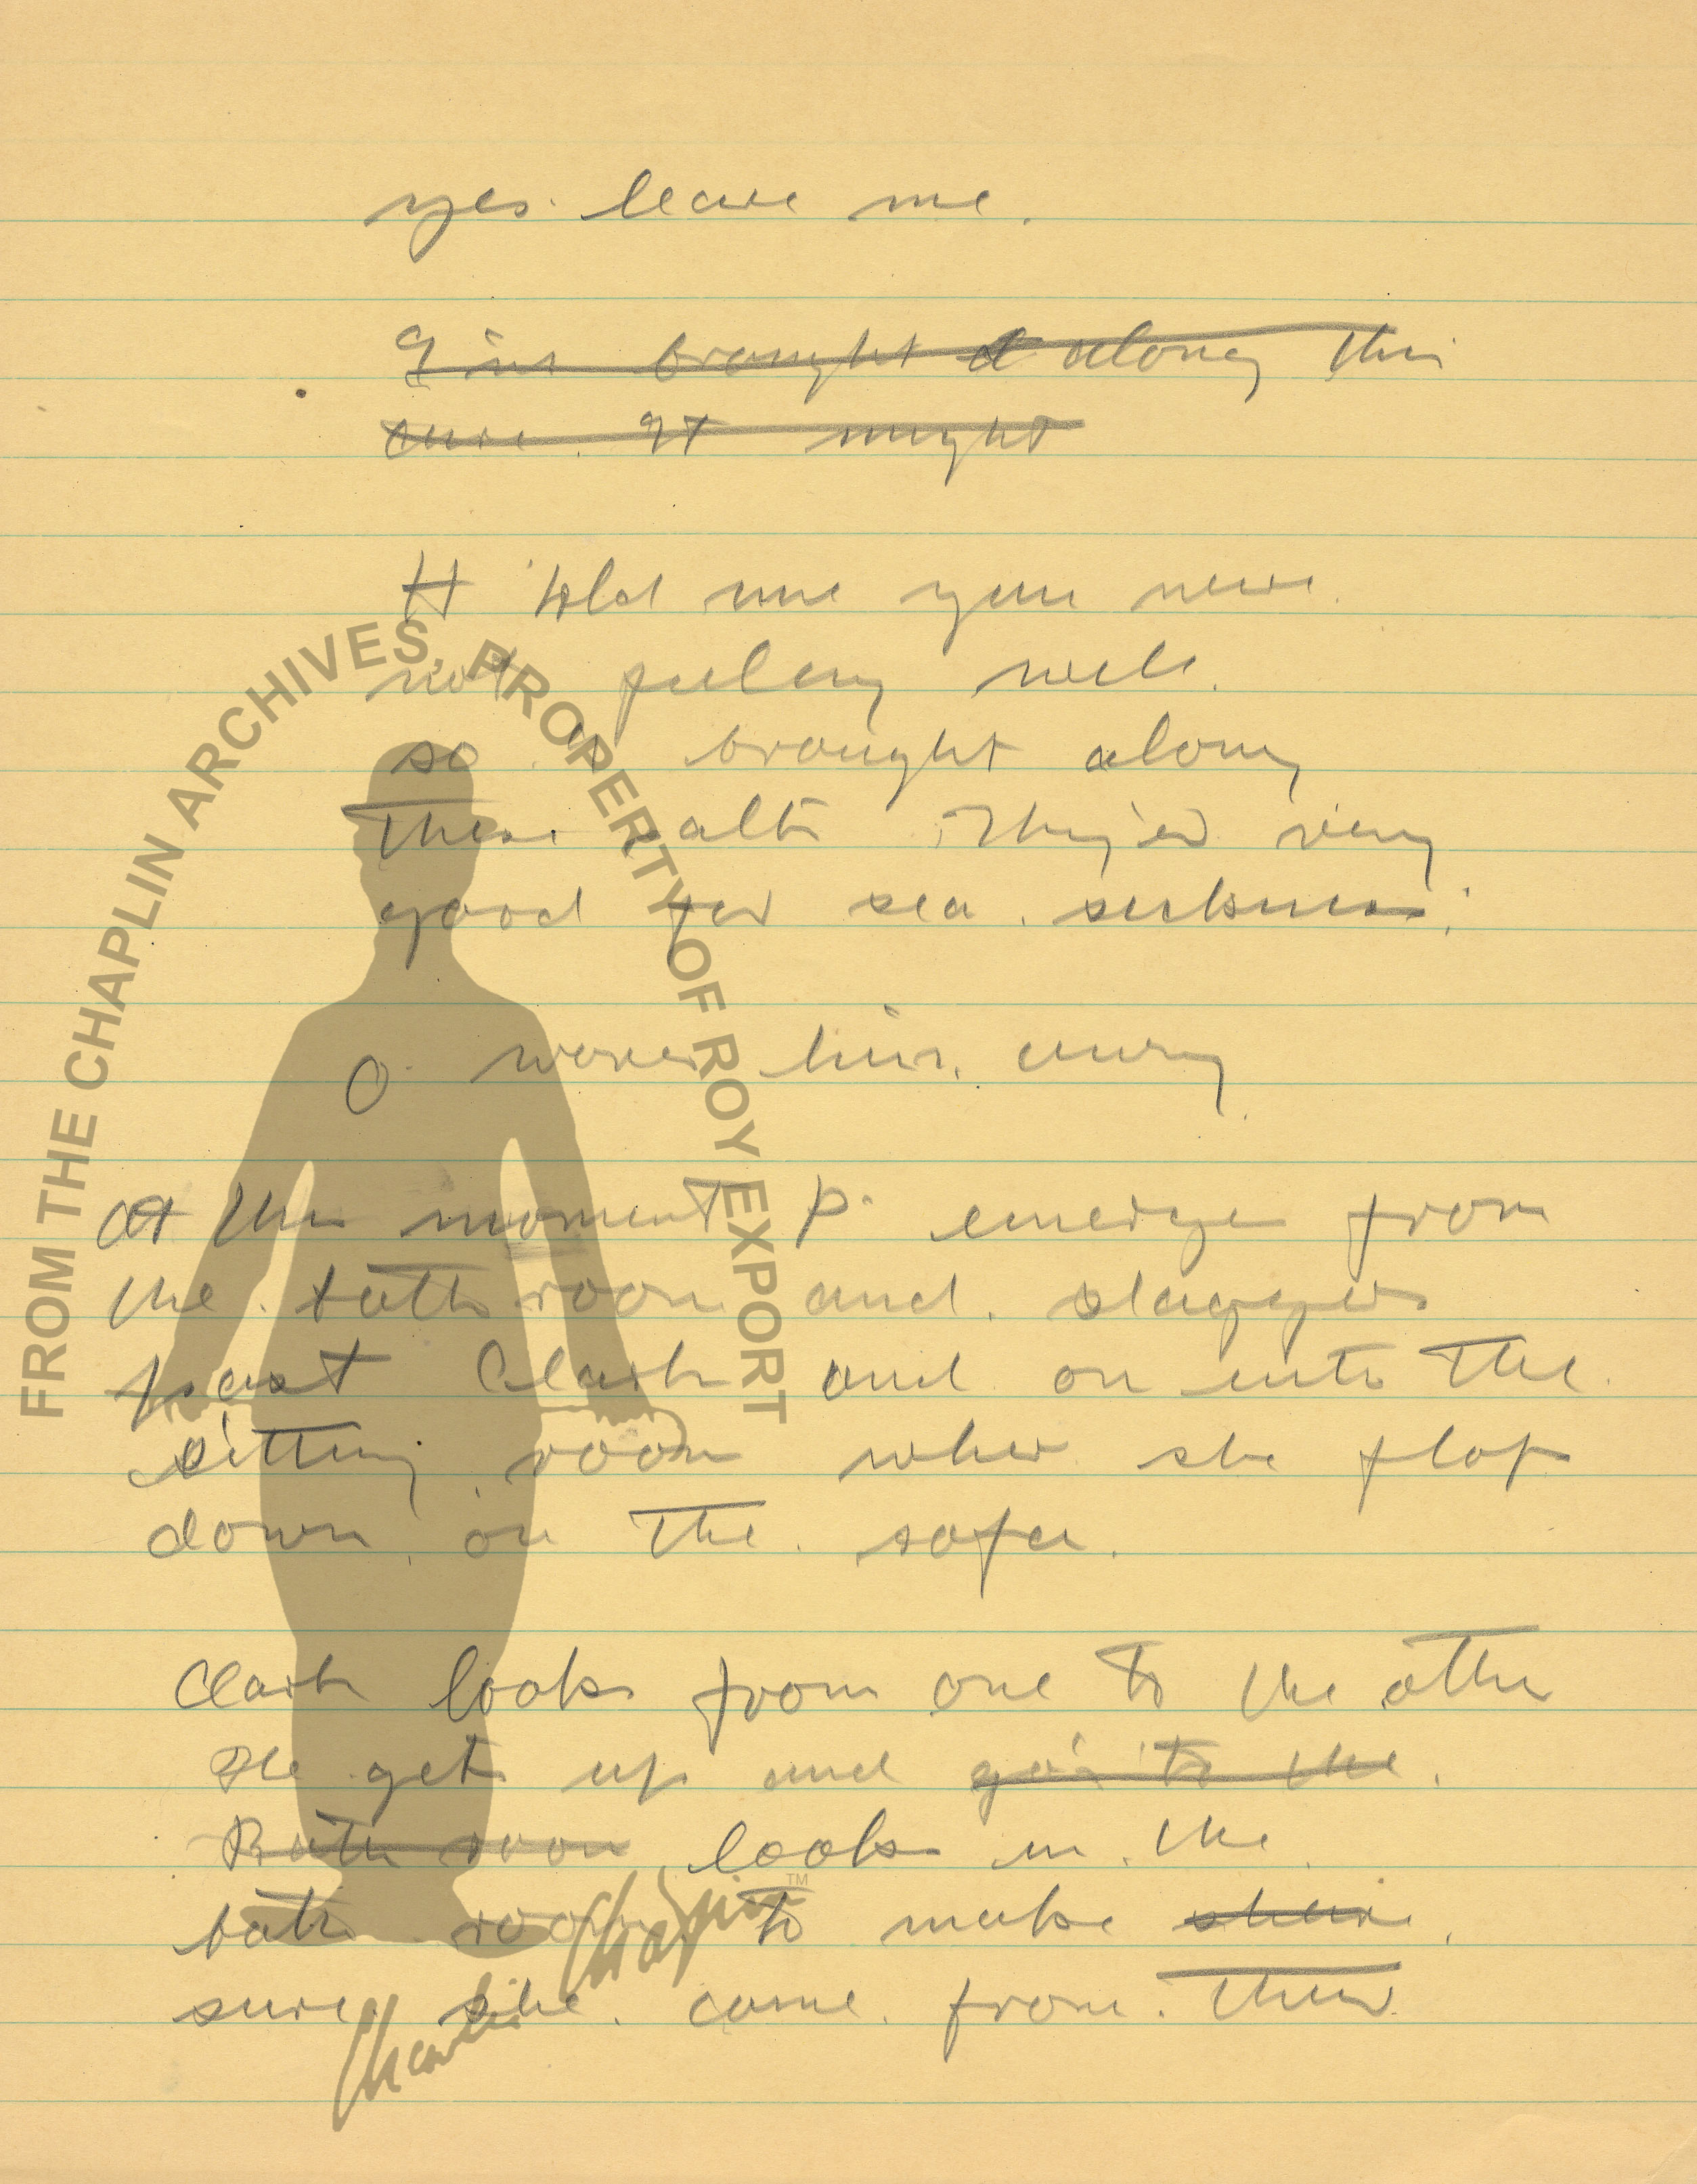 yes. leave me.
I just brought it along this
cure. It might
H told me you were
not feeling well.
so I brought along
these salts They're very
good for sea. sickness.
O. waves him away
At this moment P. emerges from
the bath room and staggers
past Clark and on into the
sitting room where she flops
down on the sofa.
Clark looks from one to the other
He gets up and goes to the
Bath room looks in the
bath room to make
sure she came from there
FROM THE CHAPLIN ARCHIVES, PROPERTY OF ROY EXPORT
Charlie Chaplin ™